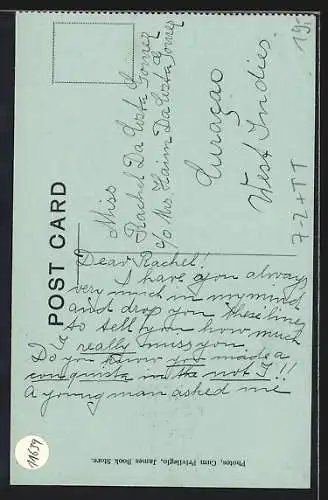 POST CARD
Miss
Rachel Da Costa Gomez
c/o Mrs. Haim Da Costa Gomez
Curaçao
West Indies.
Dear Rachel!
I have you always
very much in my mind
and drop you these lines
to tell you how much
I really miss you.
Do you know you made a
conquista in the not I!!
A young man asked me
Photos, Cum Privilegio, James Book Store.
11659